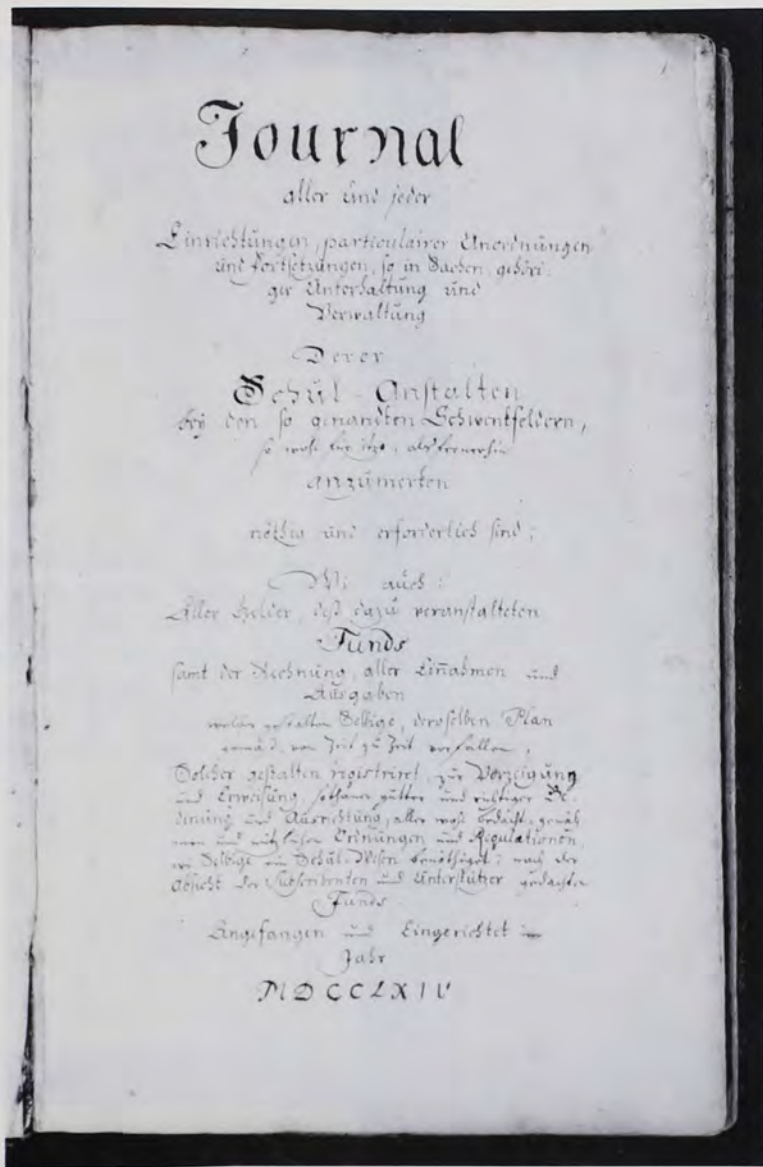 1
Journal
aller und jeder
Einrichtungen, particulairer Anordnungen
und Fortsetzungen, so in Sachen, gehöri-
ger Unterhaltung und
Verwaltung
Derer
Schul-Anstalten
bey den so genandten Schwenkfeldern,
so wohl für itzt, als fernerhin
anzumerken
nöthig und erforderlich sind;
Wie auch:
Aller Gelder, deß dazu veranstalteten
Funds
samt der Rechnung, aller Einahmen und
Ausgaben
welcher gestalten Selbige, deroselben Plan
gemäß, von Zeit zu Zeit vorfallen,
Solcher gestalten registriret, zur Vorzeigung
und Erweisung, sothaner gutter und richtiger Be-
dienung und Ausrichtung, aller wohl bedacht, gemäß
und nützlichen Ordnungen und Regulationen,
wie Selbige ein Schul-Wesen benöthiget; nach der
Absicht der Subscribenten und Unterstützer gedachten
Funds
Angefangen und Eingerichtet im
Jahr
MDCCLXIV